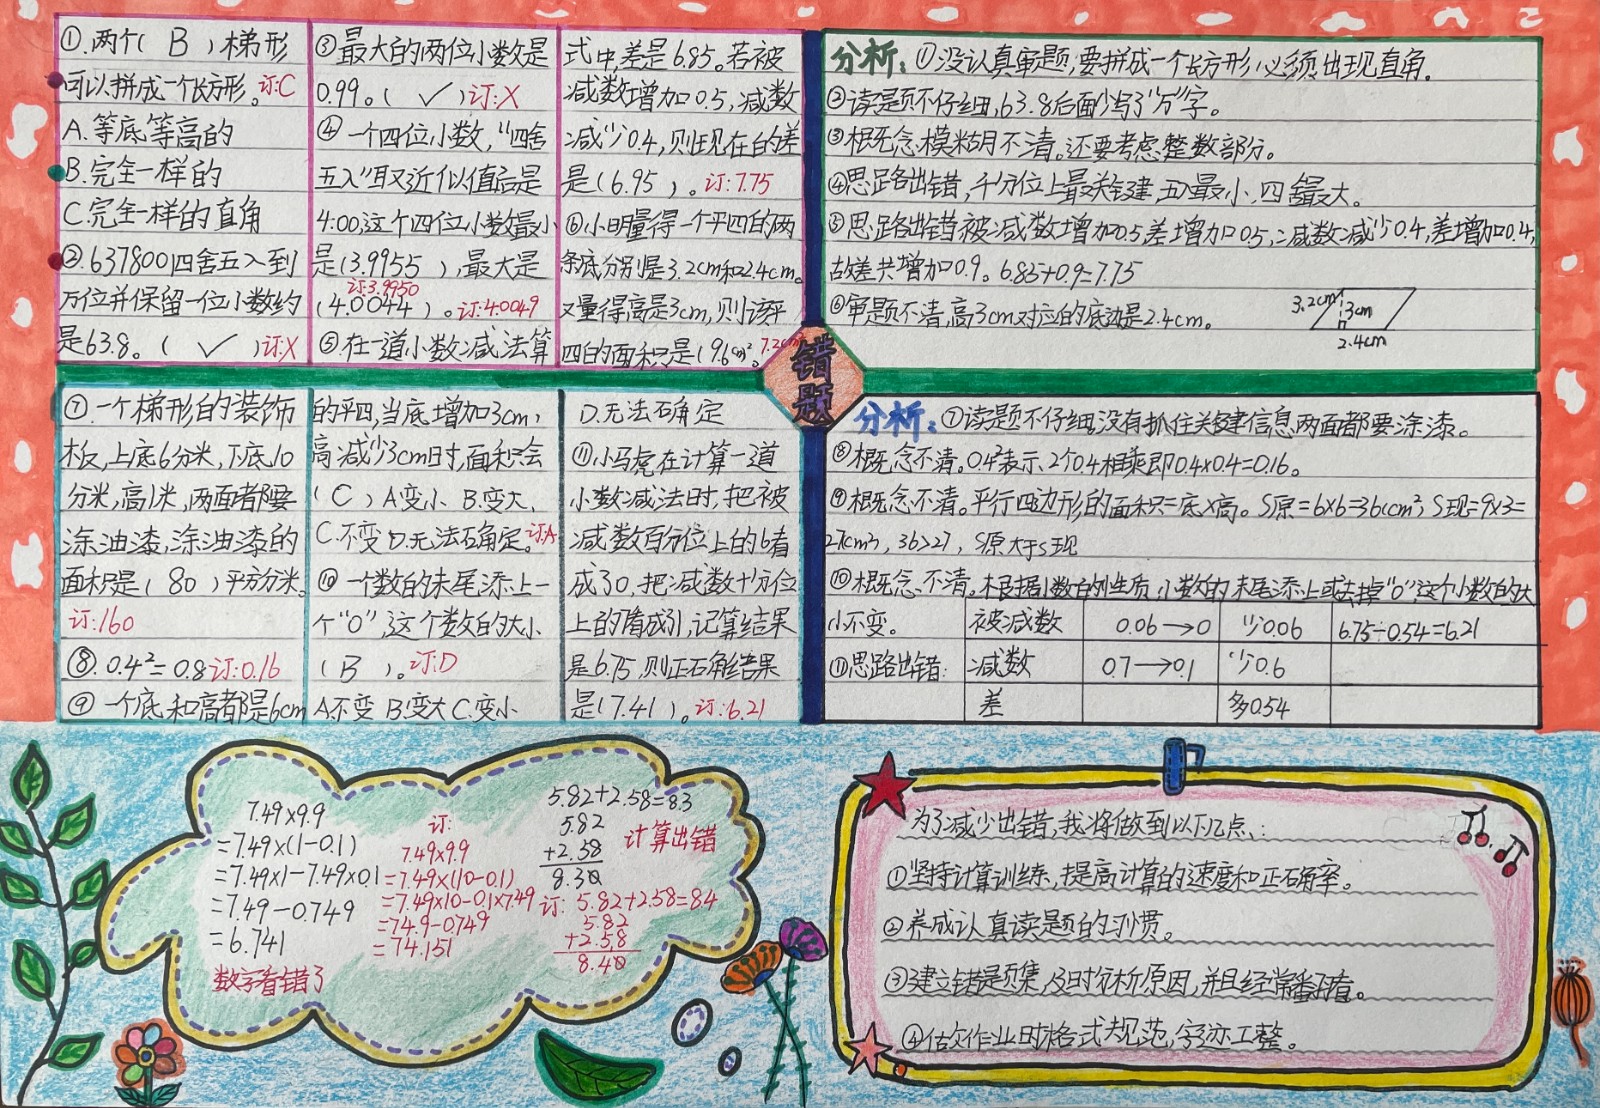 ①.两个( B )梯形
可以拼成一个长方形。订:C
A.等底等高的
B.完全一样的
C.完全一样的直角
②.637800四舍五入到
万位并保留一位小数约
是63.8。( ✓ )订:X
③最大的两位小数是
0.99。( ✓ )订:X
④一个四位小数,“四舍
五入”取近似值后是
4.00,这个四位小数最小
是(3.9955),最大是
订:3.9950
(4.0044)。订:4.0049
⑤.在一道小数减法算
式中,差是6.85.若被
减数增加0.5,减数
减少0.4,则现在的差
是(6.95)。订:7.75
⑥小明量得一个平四的两
条底分别是3.2cm和2.4cm。
又量得高是3cm,则该平
四的面积是(9.6cm²。7.2cm²
分析:①没认真审题,要拼成一个长方形,必须出现直角.
②读题不仔细,63.8后面少写了“万”字。
③概念模糊不清。还要考虑整数部分。
④思路出错,千分位上最关键,五入最小,四舍最大。
⑤思路出错被减数增加0.5,差增加0.5,减数减少0.4,差增加0.4,
故差共增加0.9。6.85+0.9=7.75
⑥审题不清,高3cm对应的底边是2.4cm。
3.2cm
3cm
2.4cm
错
题
⑦.一个梯形的装饰
板,上底6分米,下底10
分米,高1米,两面都要
涂油漆,涂油漆的
面积是(80)平方分米。
订:160
⑧.0.4²=0.8订:0.16
⑨一个底和高都是6cm
的平四,当底增加3cm,
高减少3cm时,面积会
(C)A变小 B.变大、
C.不变D.无法确定。订:A
⑩一个数的末尾添上一
个“0”,这个数的大小
(B)。订:D
A.不变 B.变大C.变小
D.无法确定
⑪小马虎在计算一道
小数减法时,把被
减数百分位上的6看
成了0,把减数十分位
上的7看成了1,记算结果
是6.75,则正确结果
是(7.41)。订:6.21
分析:⑦读题不仔细,没有抓住关键信息,两面都要涂漆。
⑧概念不清。0.4²表示2个0.4相乘即0.4×0.4=0.16。
⑨概念不清。平行四边形的面积=底×高。S原=6×6=36(cm²,S现=9×3=
27(cm²),36>27,S原大于S现
⑩概念不清。根据小数的性质,小数的末尾添上或去掉“0”,这个小数的大
小不变。
被减数 0.06→0 少0.06 6.75-0.54=6.21
⑪思路出错:
减数 0.7→0.1 少0.6
差 多0.54
7.49×9.9
=7.49×(1-0.1)
=7.49×1-7.49×0.1
=7.49-0.749
=6.741
数字看错了
订:
7.49×9.9
=7.49×(10-0.1)
=7.49×10-0.1×7.49
=74.9-0.749
=74.151
5.82+2.58=8.3
5.82
+2.58
8.30
计算出错
订: 5.82+2.58=8.4
5.82
+2.58
8.40
为了减少出错,我将做到以下几点:
①坚持计算训练,提高计算的速度和正确率。
②养成认真读题的习惯。
③建立错题集,及时分析原因,并且经常翻看。
④做作业时格式规范,字迹工整。